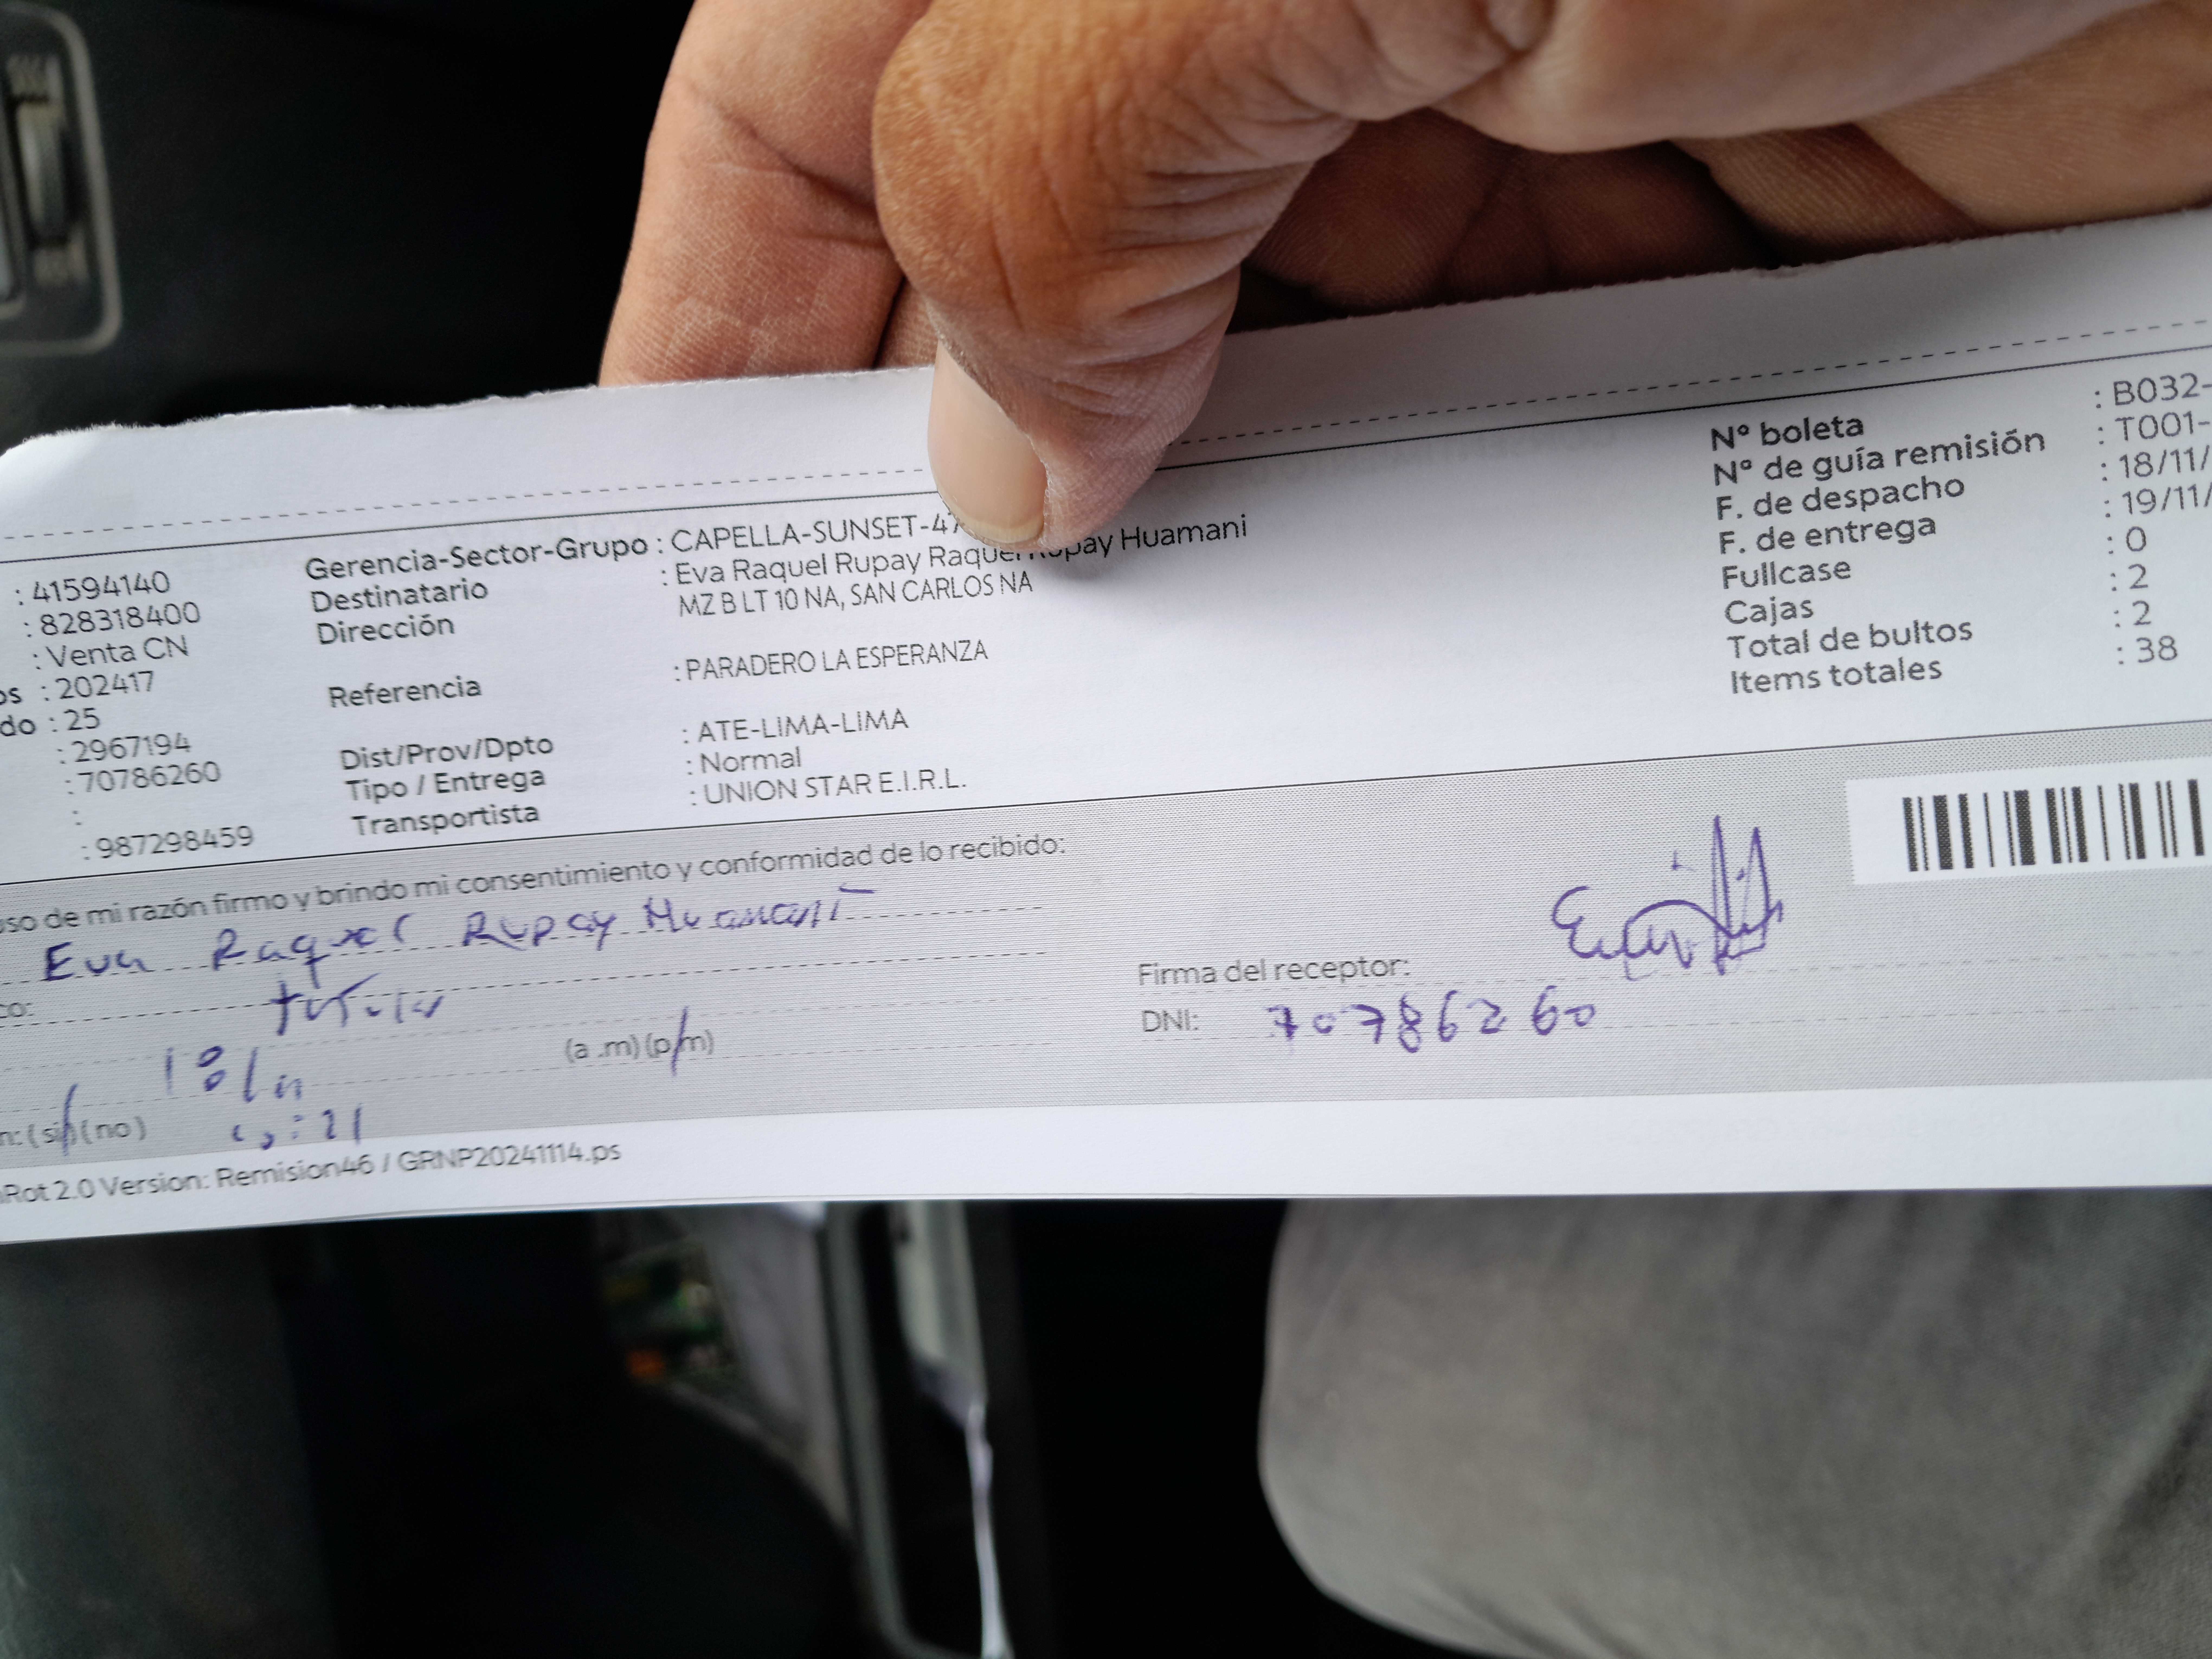 : 41594140
: 828318400
: Venta CN
os : 202417
do : 25
: 2967194
: 70786260
:
: 987298459
Gerencia-Sector-Grupo : CAPELLA-SUNSET-47
Destinatario : Eva Raquel Rupay Raquel Rupay Huamani
Dirección MZ B LT 10 NA, SAN CARLOS NA
Referencia : PARADERO LA ESPERANZA
Dist/Prov/Dpto : ATE-LIMA-LIMA
Tipo / Entrega : Normal
Transportista : UNION STAR E.I.R.L.
N° boleta : B032-
N° de guía remisión : T001-
F. de despacho : 18/11/
F. de entrega : 19/11/
Fullcase : 0
Cajas : 2
Total de bultos : 2
Items totales : 38
uso de mi razón firmo y brindo mi consentimiento y conformidad de lo recibido:
Eva Raquel Rupay Huamani
co: titular
(a .m) (p.m)
n: (si) (no)
Firma del receptor:
DNI: 70786260
Rot 2.0 Version: Remision46 / GRNP20241114.ps